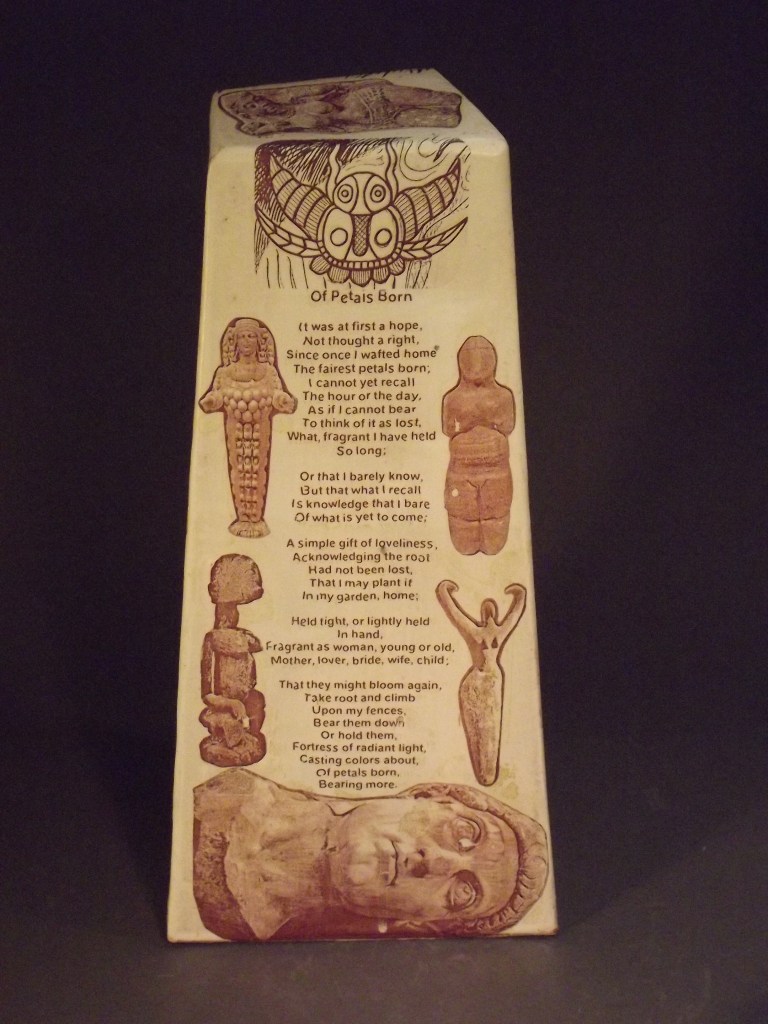 Of Petals Born
It was at first a hope,
Not thought a right,
Since once I wafted home
The fairest petals born;
I cannot yet recall
The hour or the day,
As if I cannot bear
To think of it as lost,
What, fragrant I have held
So long;
Or that I barely know,
But that what I recall
Is knowledge that I bare
Of what is yet to come;
A simple gift of loveliness,
Acknowledging the root
Had not been lost,
That I may plant it
In my garden, home;
Held tight, or lightly held
In hand,
Fragrant as woman, young or old,
Mother, lover, bride, wife, child;
That they might bloom again,
Take root and climb
Upon my fences,
Bear them down
Or hold them,
Fortress of radiant light,
Casting colors about,
Of petals born,
Bearing more.